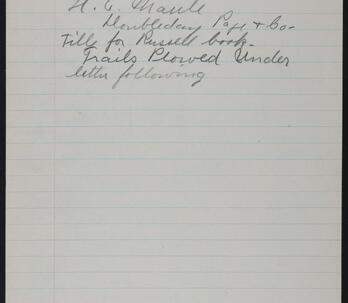 H. E. Maule
Doubleday Page & Co-
Title for Russell book-
Trails Plowed Under
letter following